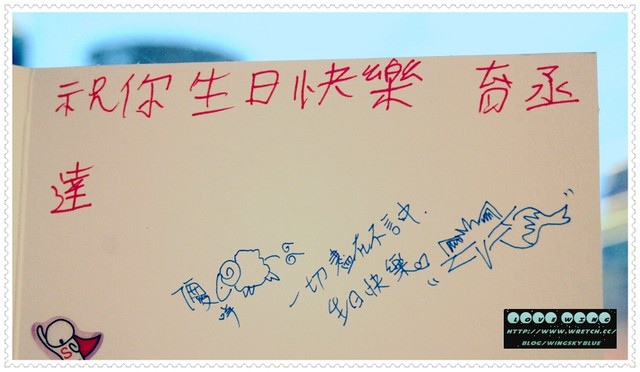 祝你生日快樂 育丞
達
一切盡在不言中.
生日快樂
LOVE WING
HTTP://WWW.WRETCH.CC/
BLOG/WINGSKYBLUE